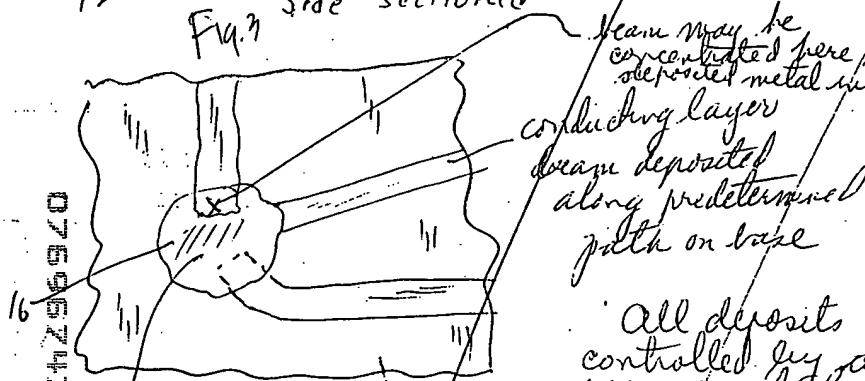 side sectioned
Fig. 3
beam may be
concentrated here
deposited metal
conducting layer
beam deposited
along predetermined
path on base
16
X
All deposits
controlled by
0769574